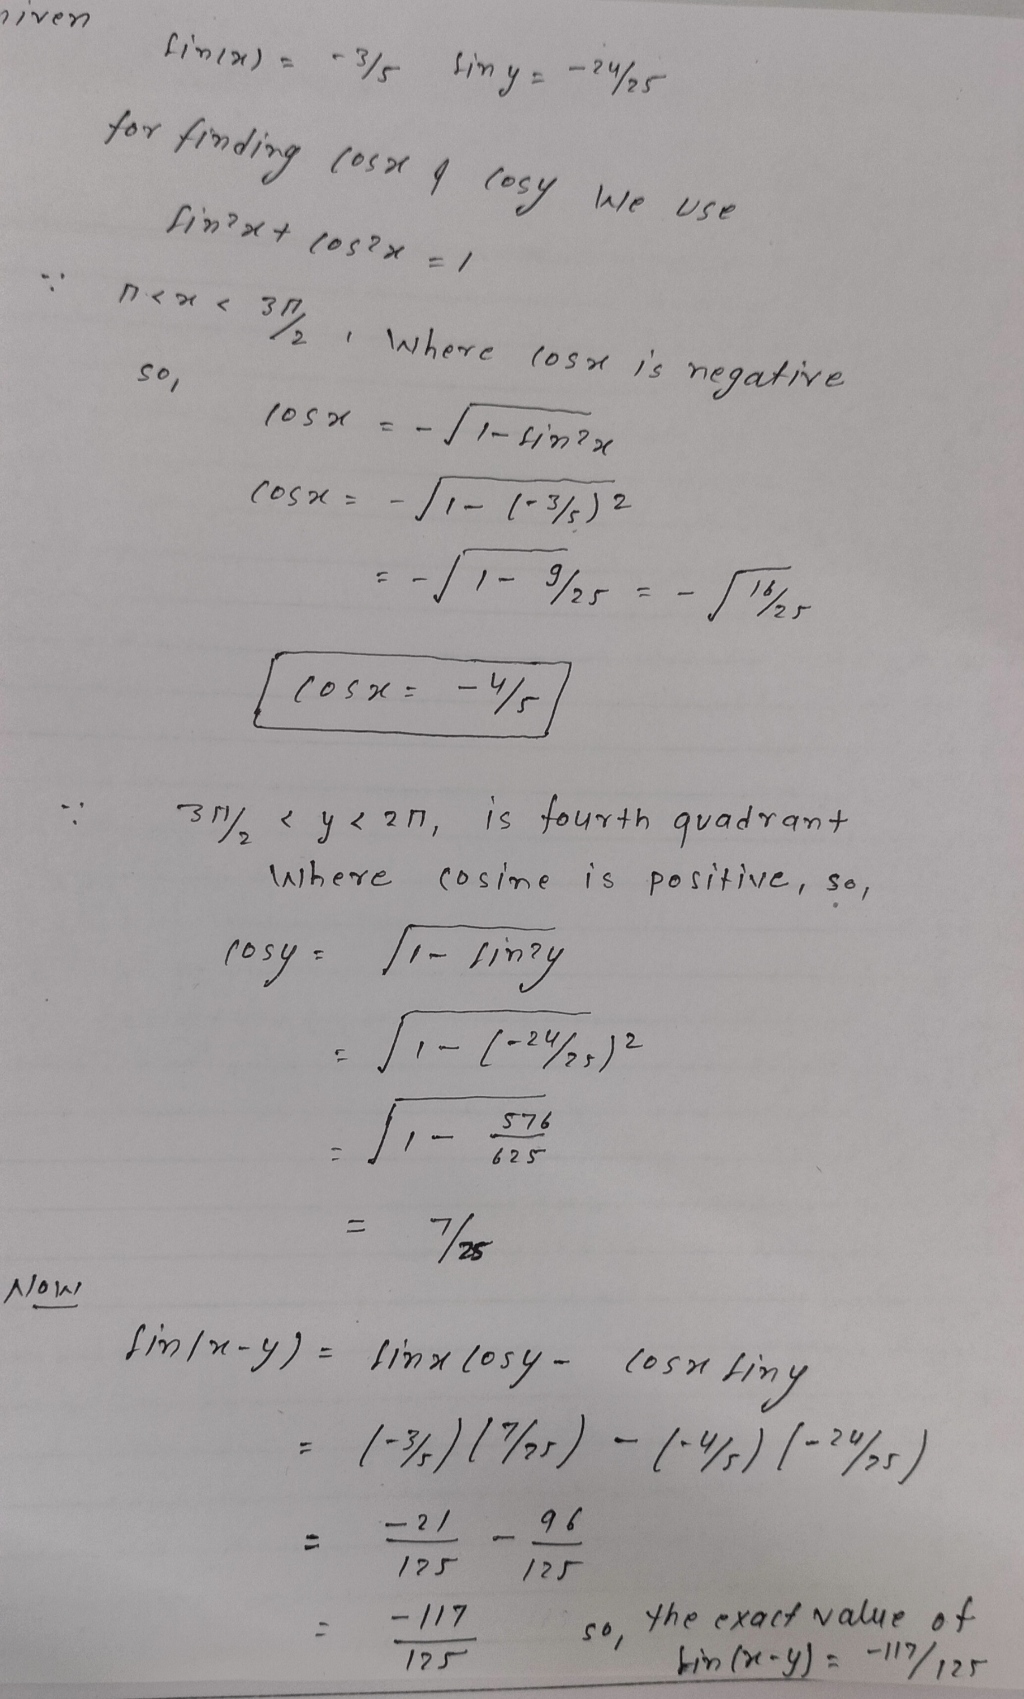 Given
sin(x) = -3/5 sin y = -24/25
for finding cosx & cosy we use
sin²x + cos²x = 1
∵ π < x < 3π/2 , where cosx is negative
so,
cosx = -√(1-sin²x)
cosx = -√(1-(-3/5)²)
= -√(1-9/25) = -√(16/25)
cosx = -4/5
∵ 3π/2 < y < 2π, is fourth quadrant
where cosine is positive, so,
cosy = √(1-sin²y)
= √(1-(-24/25)²)
= √(1-576/625)
= 7/25
Now
sin(x-y) = sinx cosy - cosx siny
= (-3/5)(7/25) - (-4/5)(-24/25)
= -21/125 - 96/125
= -117/125 so, the exact value of
sin(x-y) = -117/125